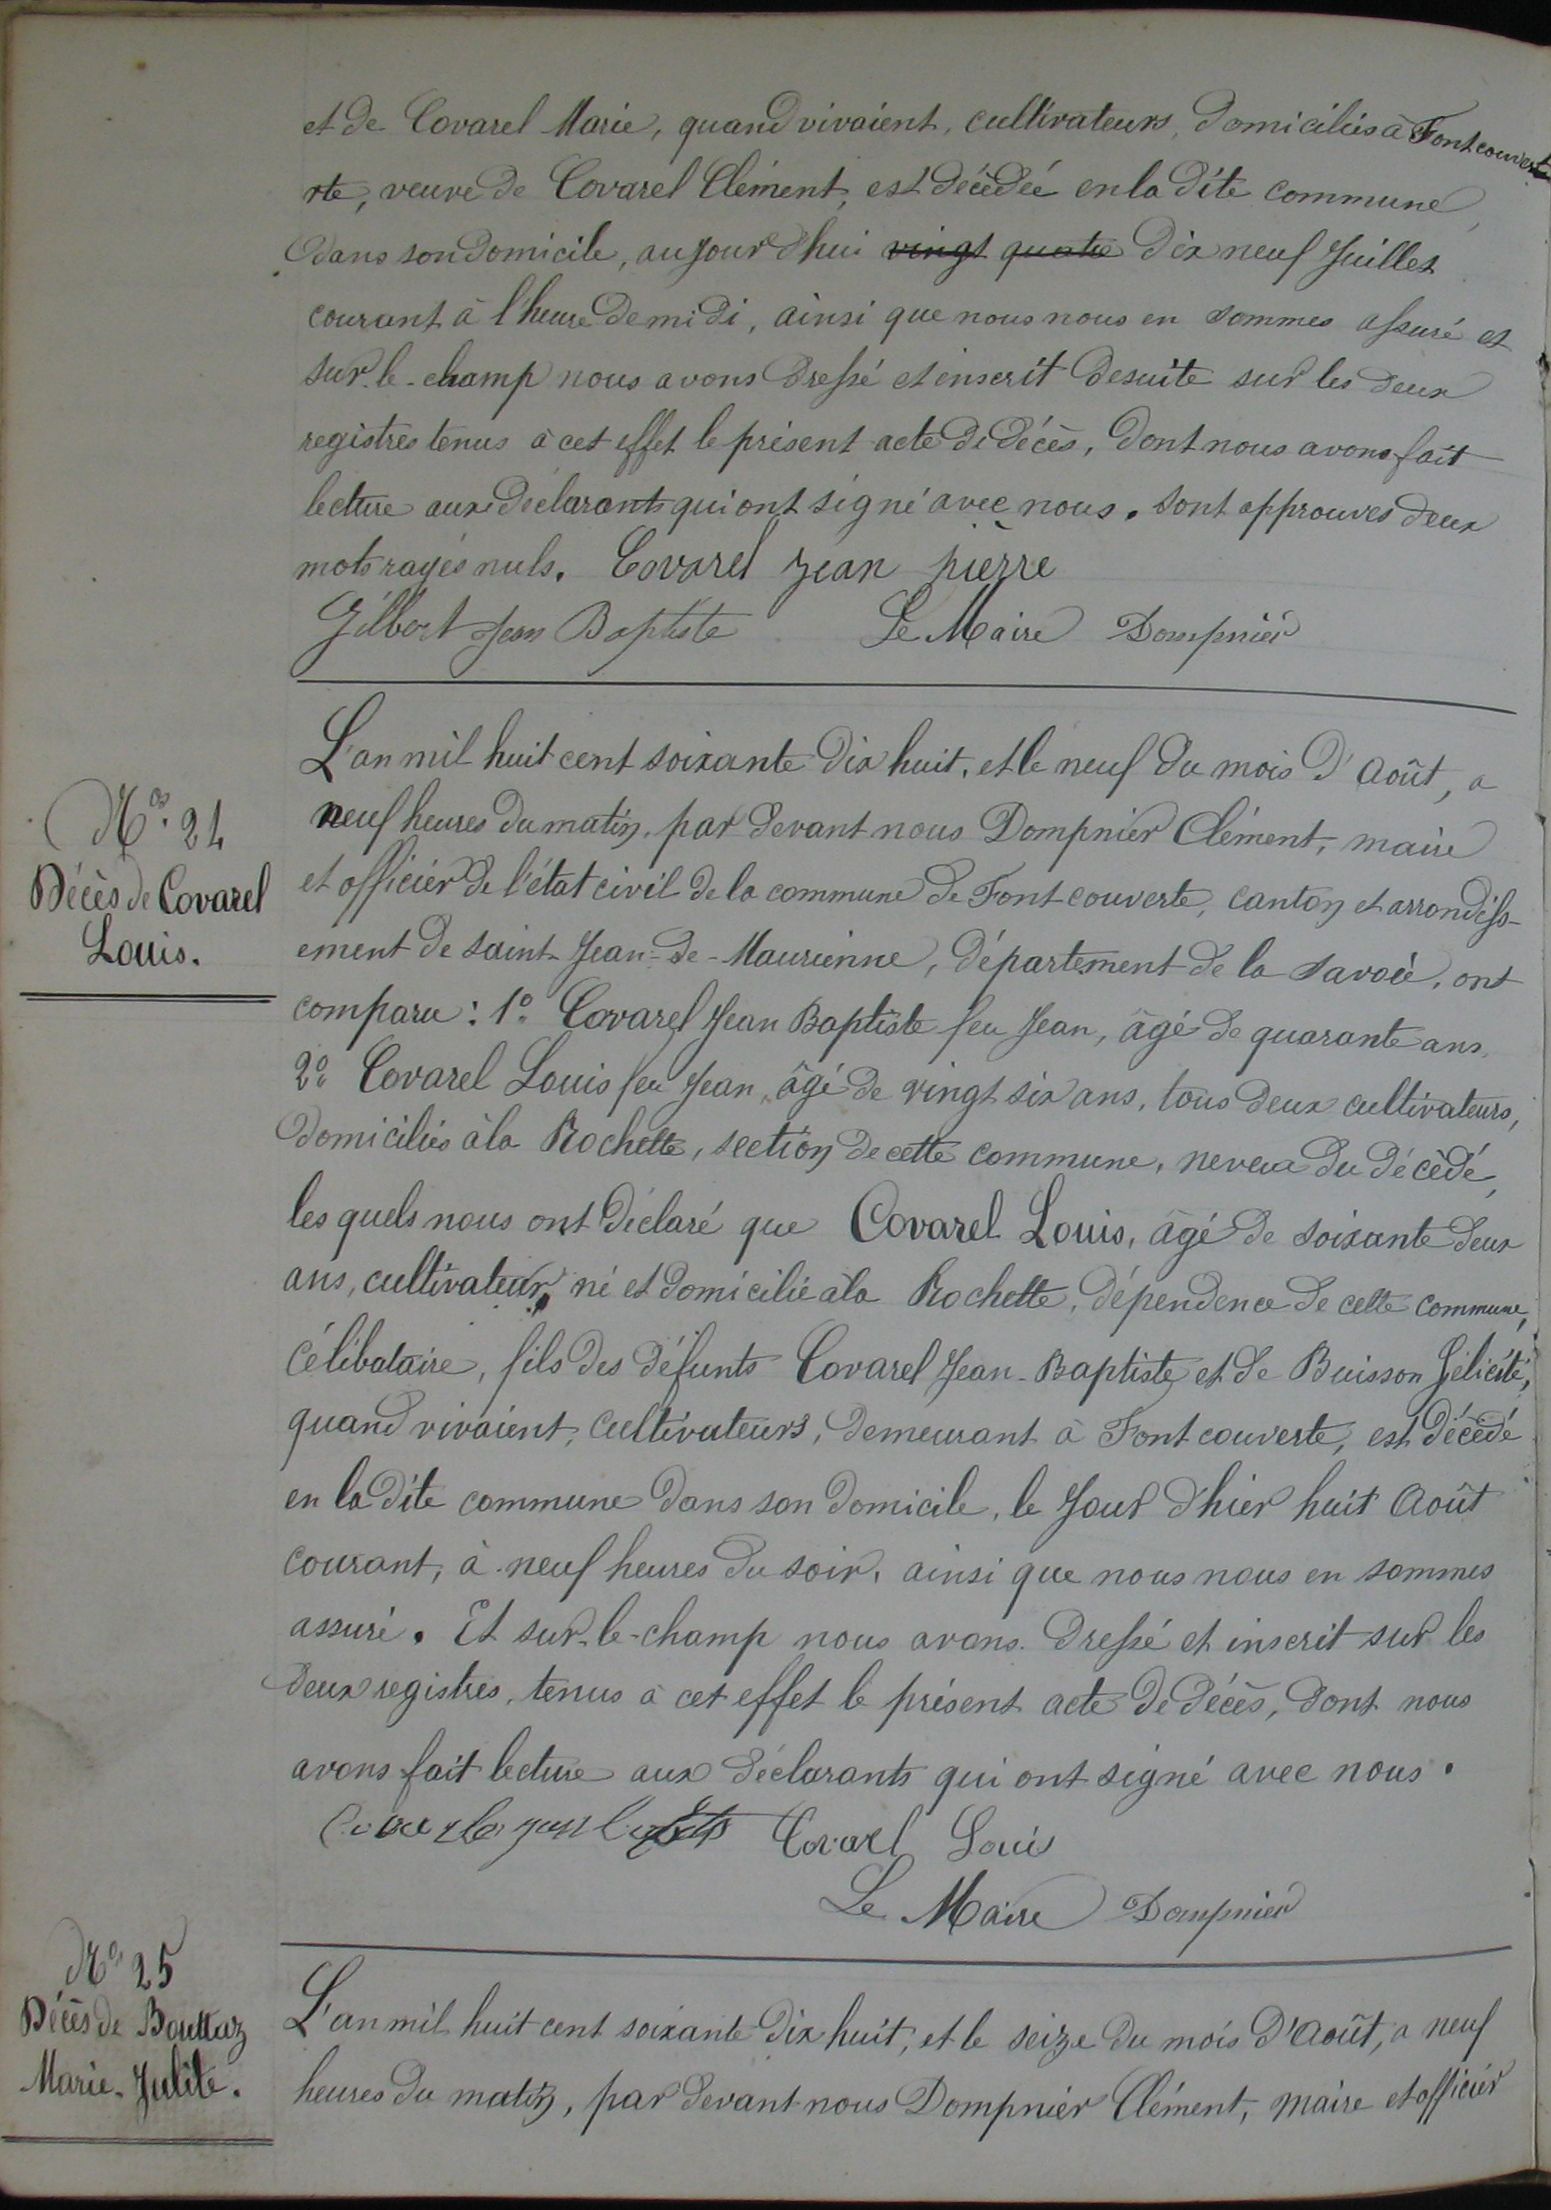 et de Covarel Marie, quand vivaient, cultivateurs, domiciliés à Fontcouve
rte, veuve de Covarel Clément, est décédée en la dite commune,
dans son domicile, aujourd'hui vingt quatre dix neuf Juillet
courant à l'heure de midi, ainsi que nous nous en sommes assuré et
sur-le-champ nous avons dressé et inscrit desuite sur les deux
registres tenus à cet effet le présent acte de décès, dont nous avons fait
lecture aux déclarants qui ont signé avec nous. Sont approuvés deux
mots rayés nuls. Covarel jean pierre
Gilbert Jean Baptiste Le Maire Dompnier
No. 24
Décès de Covarel
Louis.
L'an mil huit cent soixante dix huit, et le neuf du mois d'Août, a
neuf heures du matin, par devant nous Dompnier Clément, maire
et officier de l'état civil de la commune de Fontcouverte, canton et arrondiss-
ement de Saint-Jean-de-Maurienne, département de la Savoie, ont
comparu : 1o. Covarel Jean Baptiste feu Jean, âgé de quarante ans,
2o. Covarel Louis feu Jean, âgé de vingt six ans, tous deux cultivateurs,
domiciliés à la Rochette, section de cette commune, neveux du décédé,
les quels nous ont déclaré que Covarel Louis, âgé de soixante deux
ans, cultivateur, né et domicilié à la Rochette, dépendence de cette commune,
célibataire, fils des défunts Covarel Jean-Baptiste et de Buisson Félicité,
quand vivaient, cultivateurs, demeurant à Fontcouverte, est décédé
en la dite commune dans son domicile, le Jour d'hier huit Août
courant, à neuf heures du soir, ainsi que nous nous en sommes
assuré. Et sur-le-champ nous avons dressé et inscrit sur les
deux registres, tenus à cet effet le présent acte de décès, dont nous
avons fait lecture aux déclarants qui ont signé avec nous.
Covarel Louis
Le Maire Dompnier
No. 25
Décès de Bouttaz
Marie-Julite.
L'an mil huit cent soixante dix huit, et le seize du mois d'Août, a neuf
heures du matin, par devant nous Dompnier Clément, maire et officier